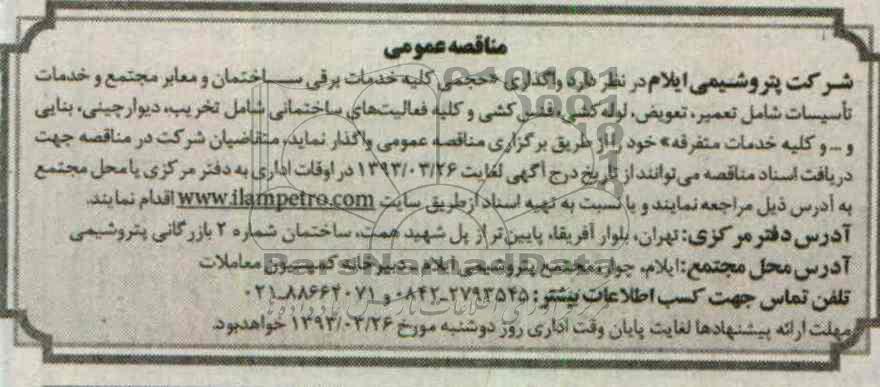 مناقصه عمومی
شرکت پتروشیمی ایلام در نظر دارد واگذاری «حجمی کلیه خدمات برقی ساختمان و معابر مجتمع و خدمات
تأسیسات شامل تعمیر، تعویض، لوله کشی، فنس کشی و کلیه فعالیت‌های ساختمانی شامل تخریب، دیوارچینی، بنایی
و ... و کلیه خدمات متفرقه» خود را از طریق برگزاری مناقصه عمومی واگذار نماید، متقاضیان شرکت در مناقصه جهت
دریافت اسناد مناقصه می‌توانند از تاریخ درج آگهی لغایت ۱۳۹۳/۰۳/۲۶ در اوقات اداری به دفتر مرکزی یا محل مجتمع
به آدرس ذیل مراجعه نمایند و یا نسبت به تهیه اسناد از طریق سایت www.ilampetro.com اقدام نمایند.
آدرس دفتر مرکزی: تهران، بلوار آفریقا، پایین‌تر از پل شهید همت، ساختمان شماره ۲ بازرگانی پتروشیمی
آدرس محل مجتمع: ایلام، چوار، مجتمع پتروشیمی ایلام ـ دبیرخانه کمیسیون معاملات
تلفن تماس جهت کسب اطلاعات بیشتر: ۲۷۹۳۵۴۵-۰۸۴۲ و ۸۸۶۶۴۰۷۱-۰۲۱
مهلت ارائه پیشنهادها لغایت پایان وقت اداری روز دوشنبه مورخ ۱۳۹۳/۰۳/۲۶ خواهد بود.
ParsNamadData